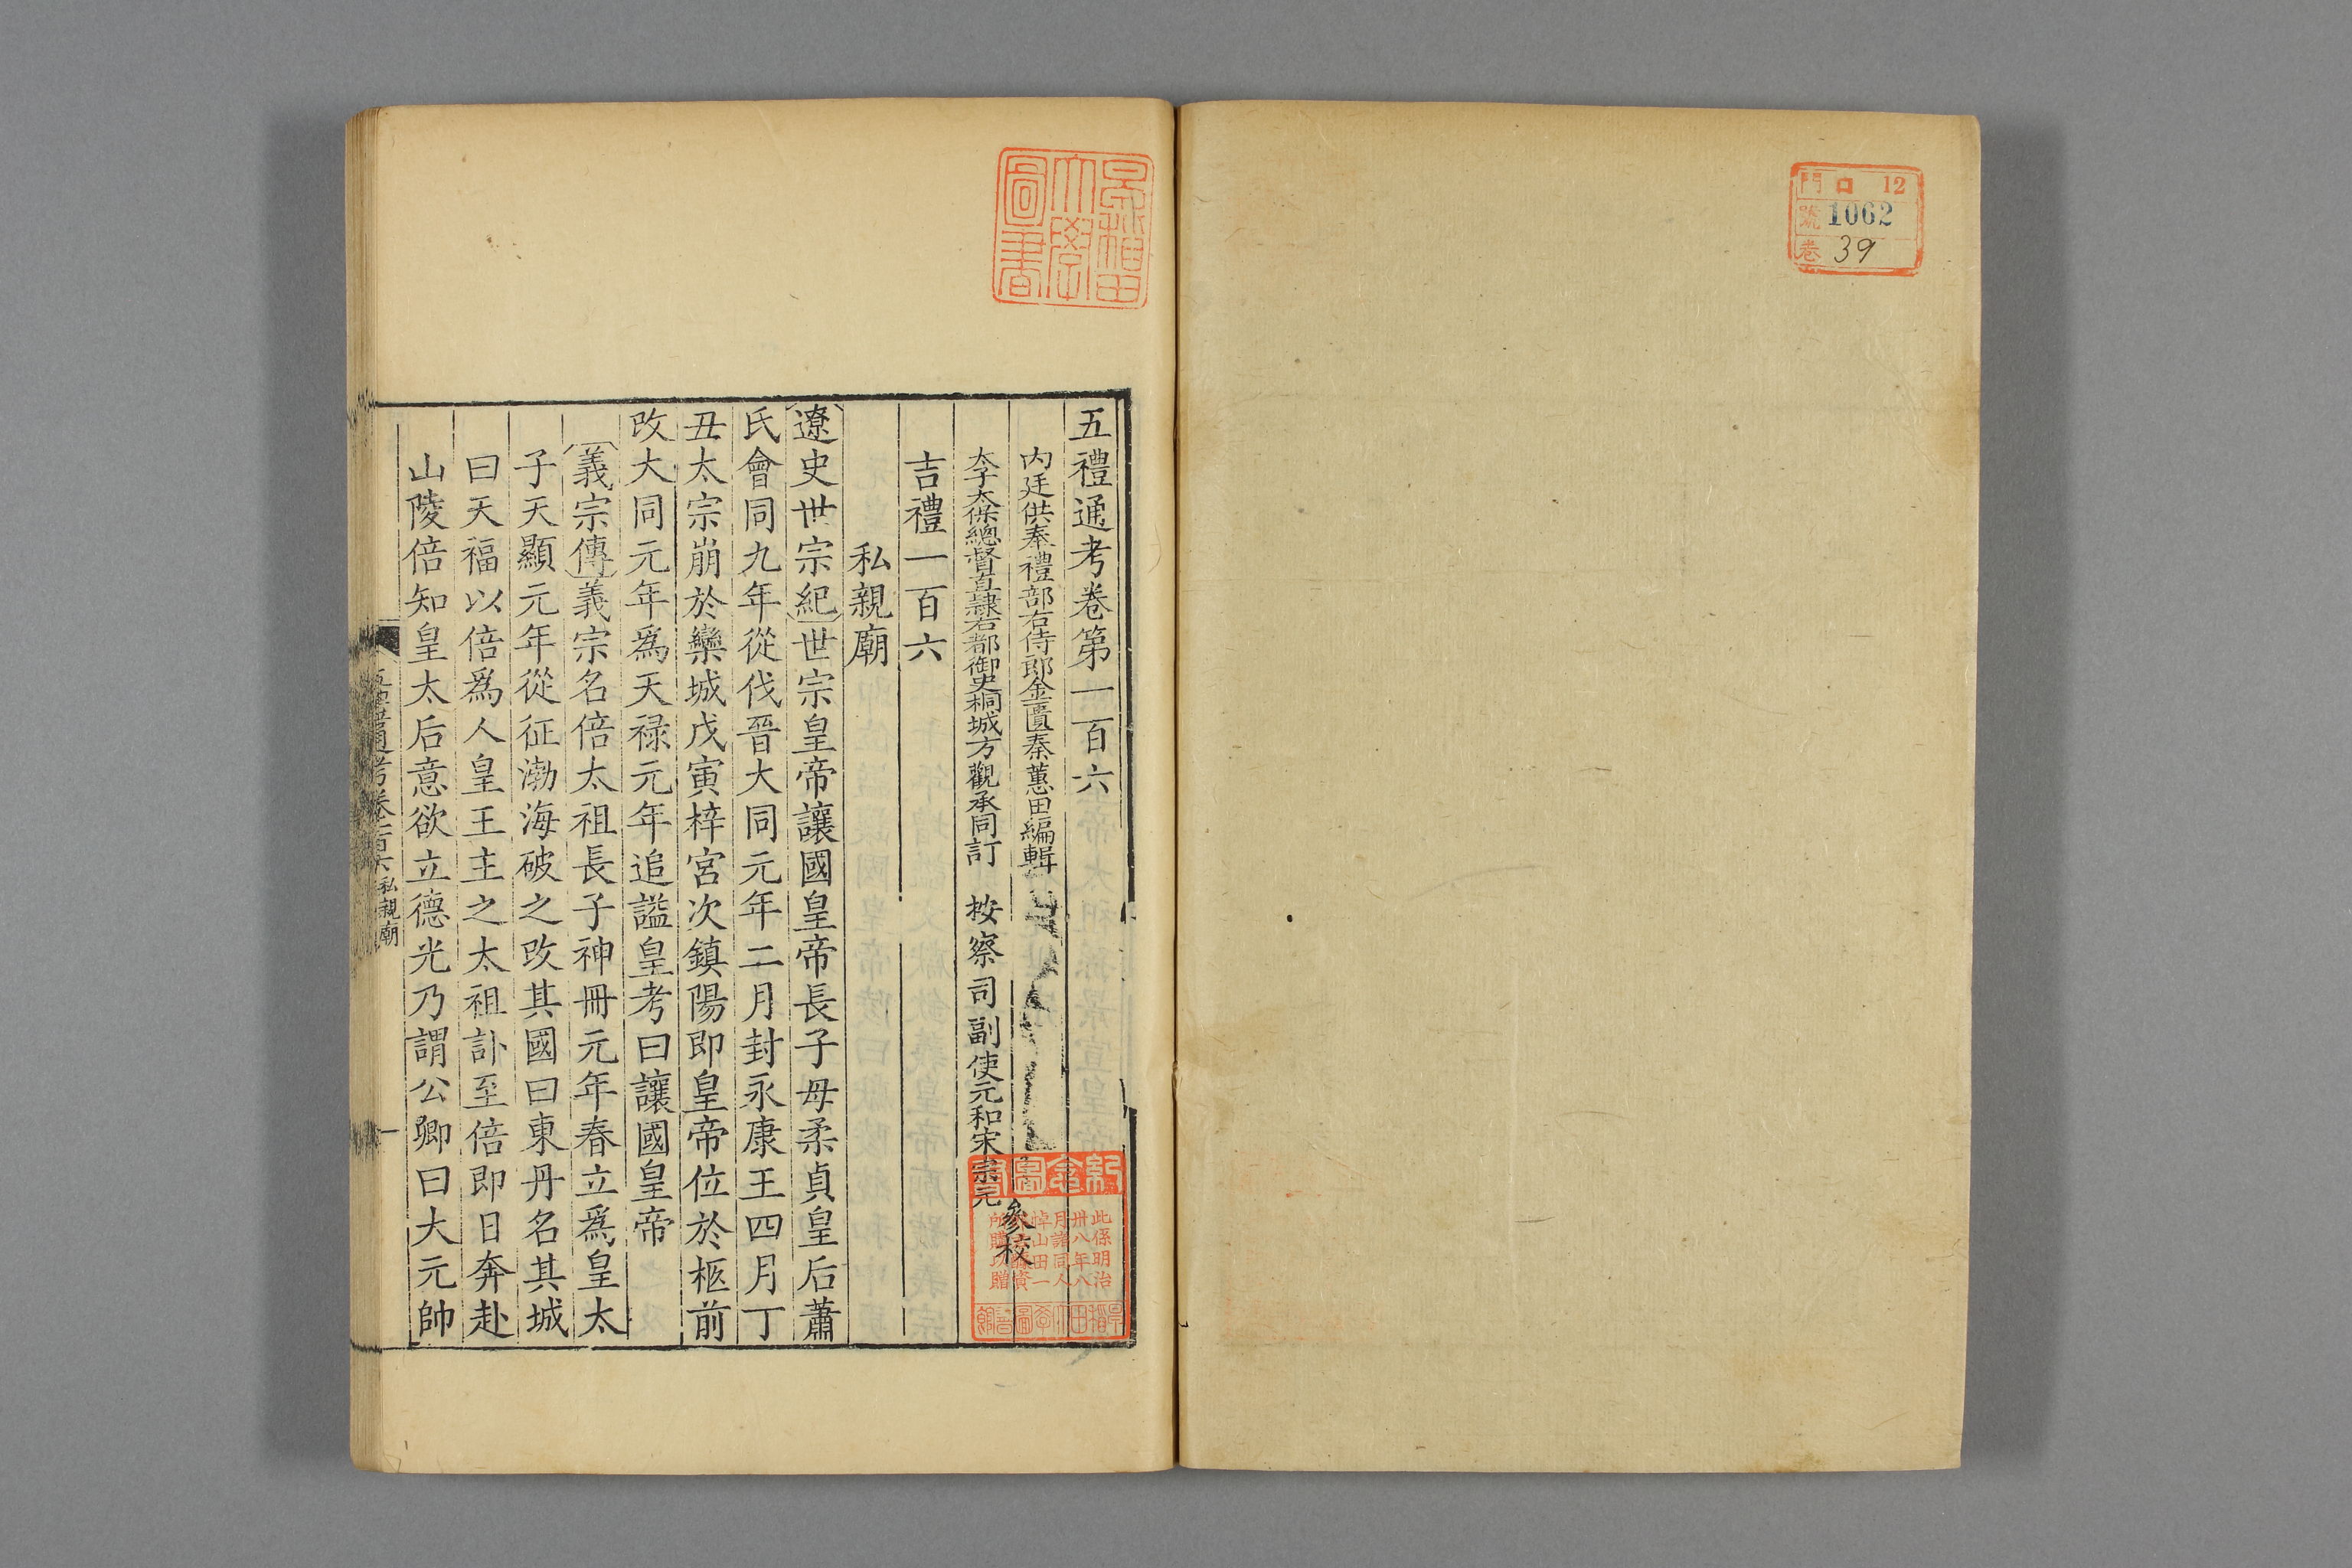 門 口 12
號 1062
卷 39
早稻田
大學
圖書
五禮通考卷第一百六
內廷供奉禮部右侍郎金匱秦蕙田編輯
太子太保總督直隸右都御史桐城方觀承同訂 按察司副使元和宋宗元
參校
吉禮一百六
私親廟
遼史世宗紀世宗皇帝讓國皇帝長子母柔貞皇后蕭
氏會同九年從伐晉大同元年二月封永康王四月丁
丑太宗崩於欒城戊寅梓宮次鎮陽即皇帝位於柩前
改大同元年爲天禄元年追謚皇考曰讓國皇帝
義宗傳義宗名倍太祖長子神冊元年春立爲皇太
子天顯元年從征渤海破之改其國曰東丹名其城
曰天福以倍爲人皇王主之太祖訃至倍即日奔赴
山陵倍知皇太后意欲立德光乃謂公卿曰大元帥
五禮通考卷一百六 私親廟
一
紀念圖書
此係明治
卅八年八
月諸同人
悼山田一
所購以贈
早稻田大學圖書館